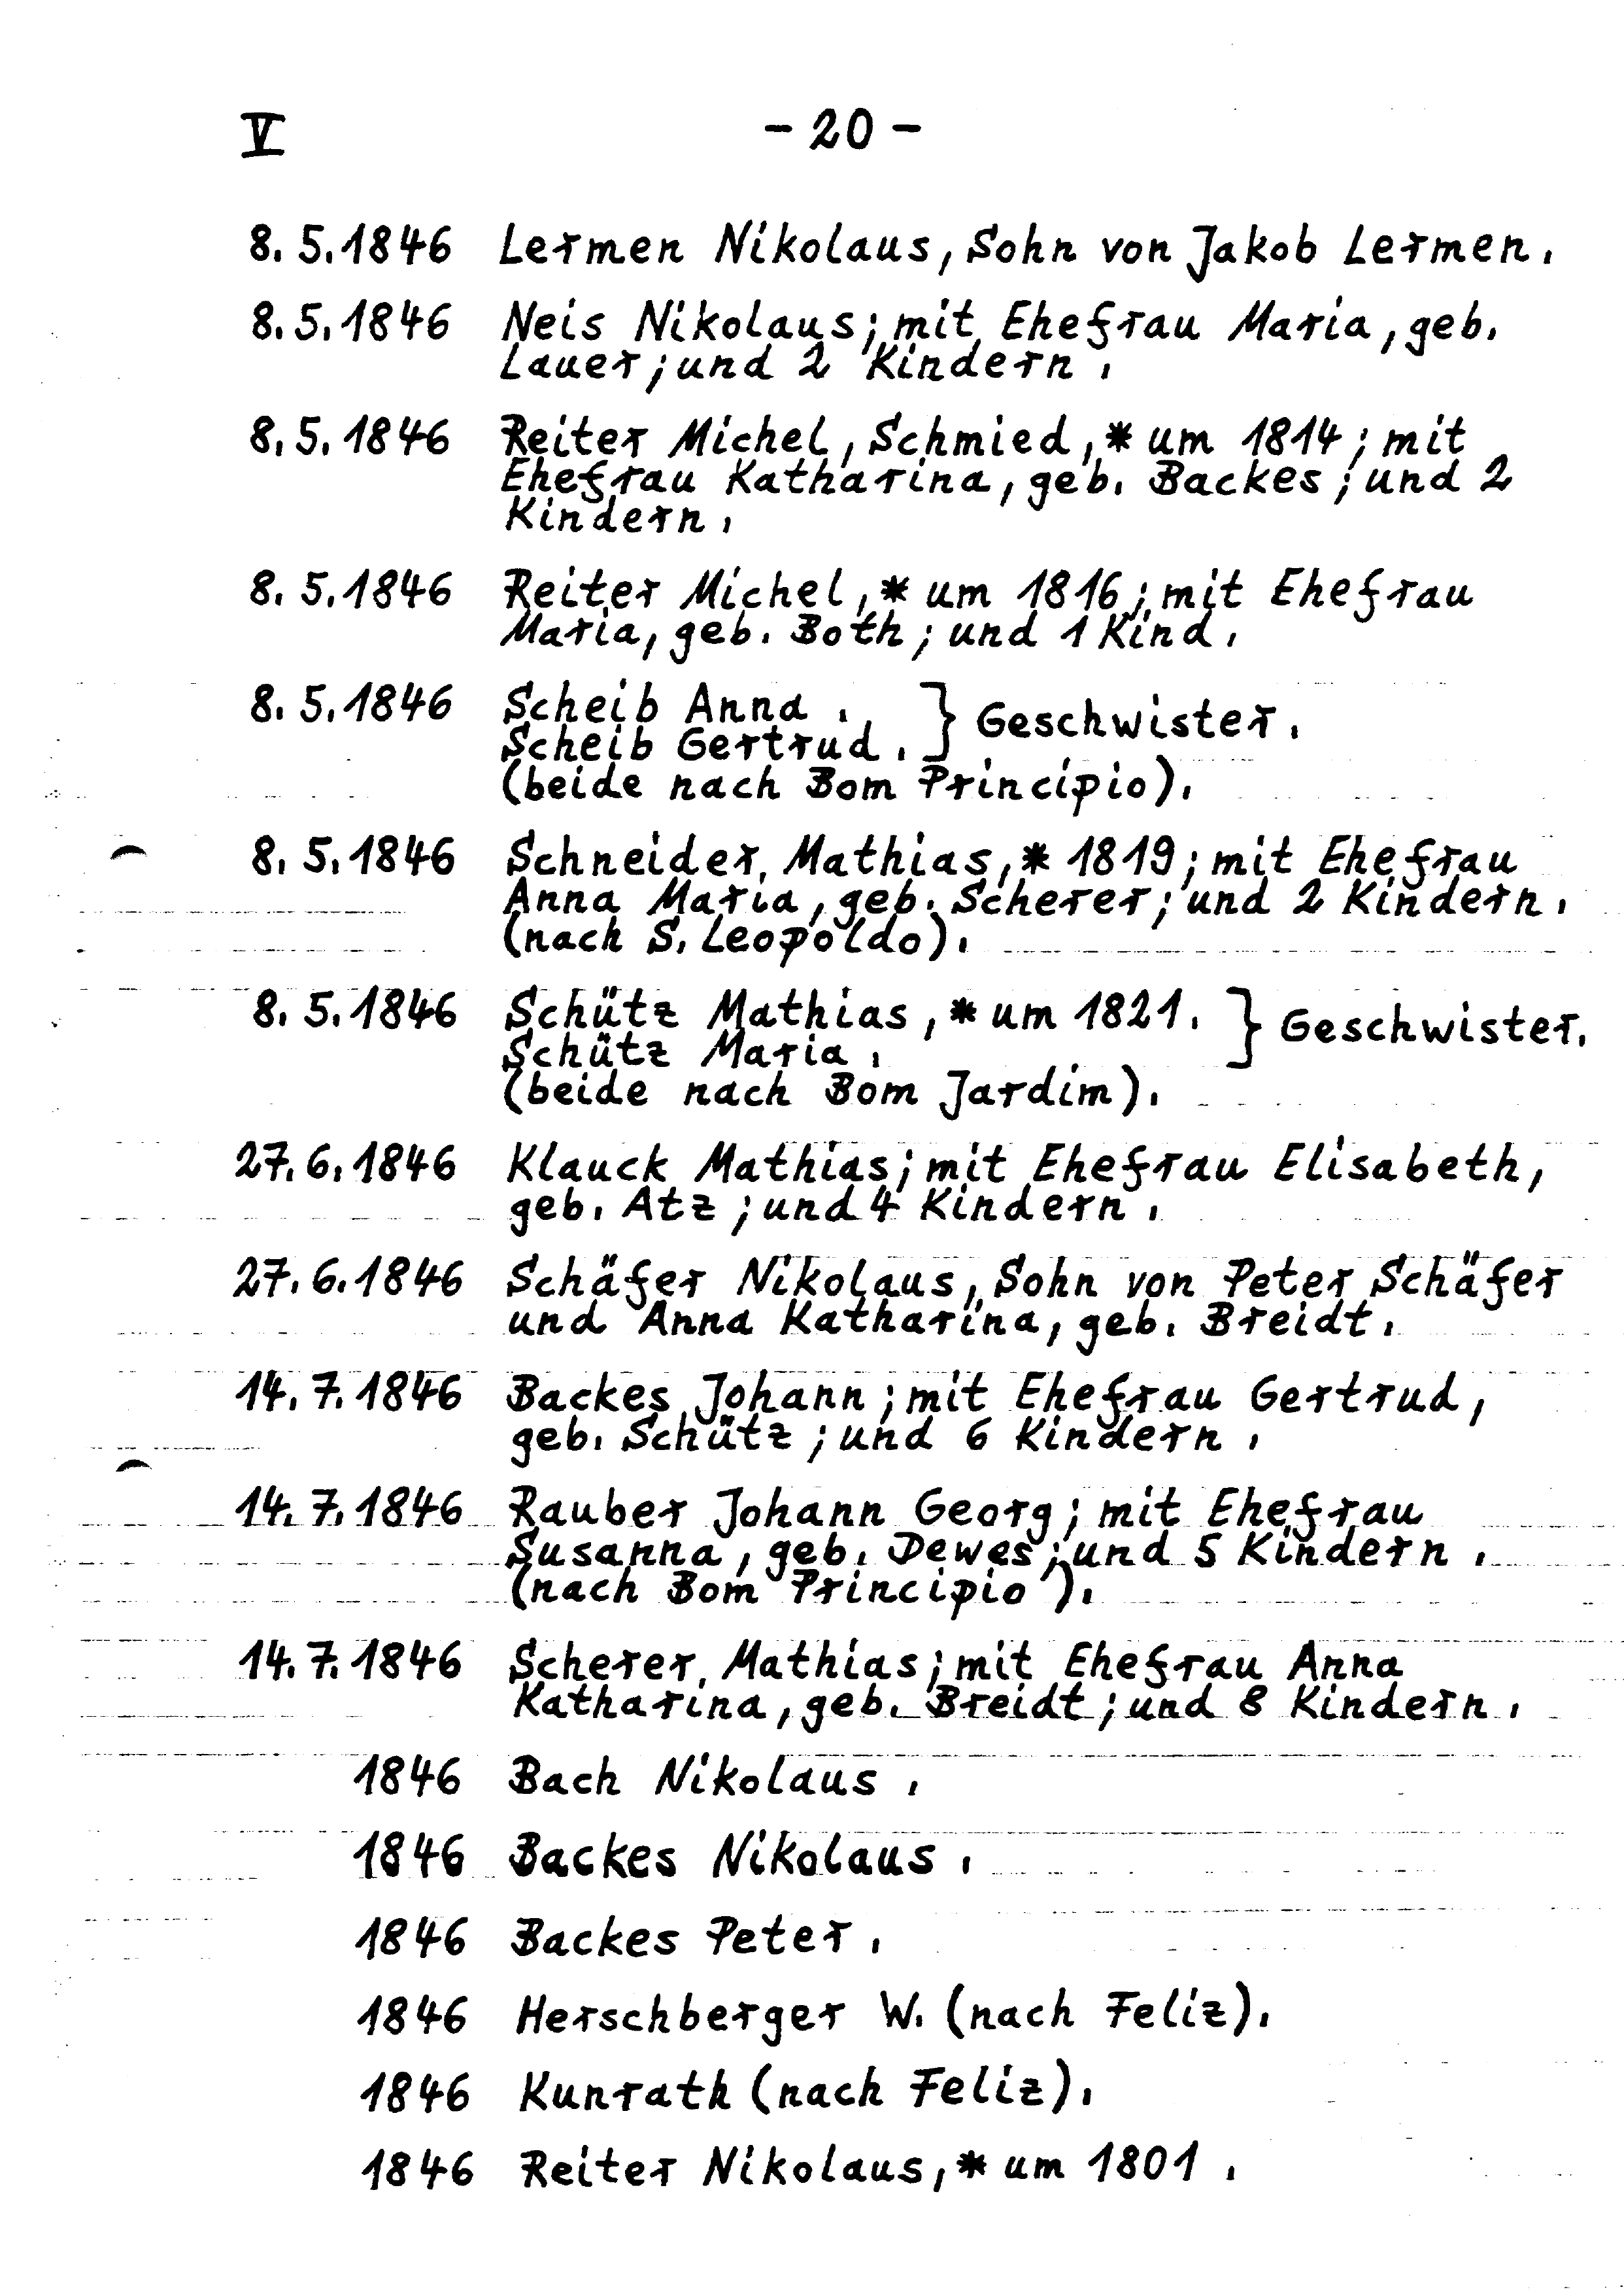 V - 20 -
8. 5. 1846 Lermen Nikolaus, Sohn von Jakob Lermen.
8. 5. 1846 Neis Nikolaus; mit Ehefrau Maria, geb.
Lauer; und 2 Kindern.
8. 5. 1846 Reiter Michel, Schmied, * um 1814; mit
Ehefrau Katharina, geb. Backes; und 2
Kindern.
8. 5. 1846 Reiter Michel, * um 1816; mit Ehefrau
Maria, geb. Both; und 1 Kind.
8. 5. 1846 Scheib Anna. } Geschwister.
Scheib Gertrud.
(beide nach Bom Principio).
8. 5. 1846 Schneider, Mathias, * 1819; mit Ehefrau
Anna Maria, geb. Scherer; und 2 Kindern.
(nach S. Leopoldo).
8. 5. 1846 Schütz Mathias, * um 1821. } Geschwister.
Schütz Maria.
(beide nach Bom Jardim).
27. 6. 1846 Klauck Mathias; mit Ehefrau Elisabeth,
geb. Atz; und 4 Kindern.
27. 6. 1846 Schäfer Nikolaus, Sohn von Peter Schäfer
und Anna Katharina, geb. Breidt.
14. 7. 1846 Backes Johann; mit Ehefrau Gertrud,
geb. Schütz; und 6 Kindern.
14. 7. 1846 Rauber Johann Georg; mit Ehefrau
Susanna, geb. Dewes; und 5 Kindern.
(nach Bom Principio).
14. 7. 1846 Scherer, Mathias; mit Ehefrau Anna
Katharina, geb. Breidt; und 8 Kindern.
1846 Bach Nikolaus.
1846 Backes Nikolaus.
1846 Backes Peter.
1846 Herschberger W. (nach Feliz).
1846 Kunrath (nach Feliz).
1846 Reiter Nikolaus, * um 1801.